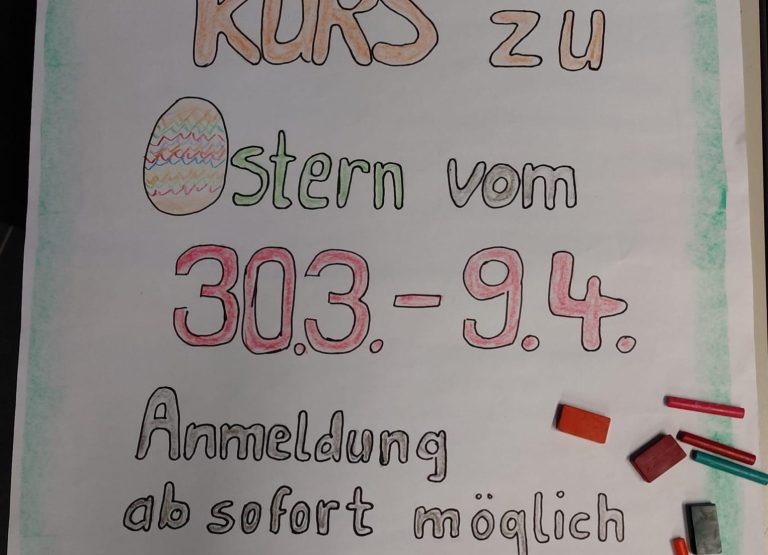 KURS zu
Ostern vom
30.3. - 9.4.
Anmeldung
ab sofort möglich